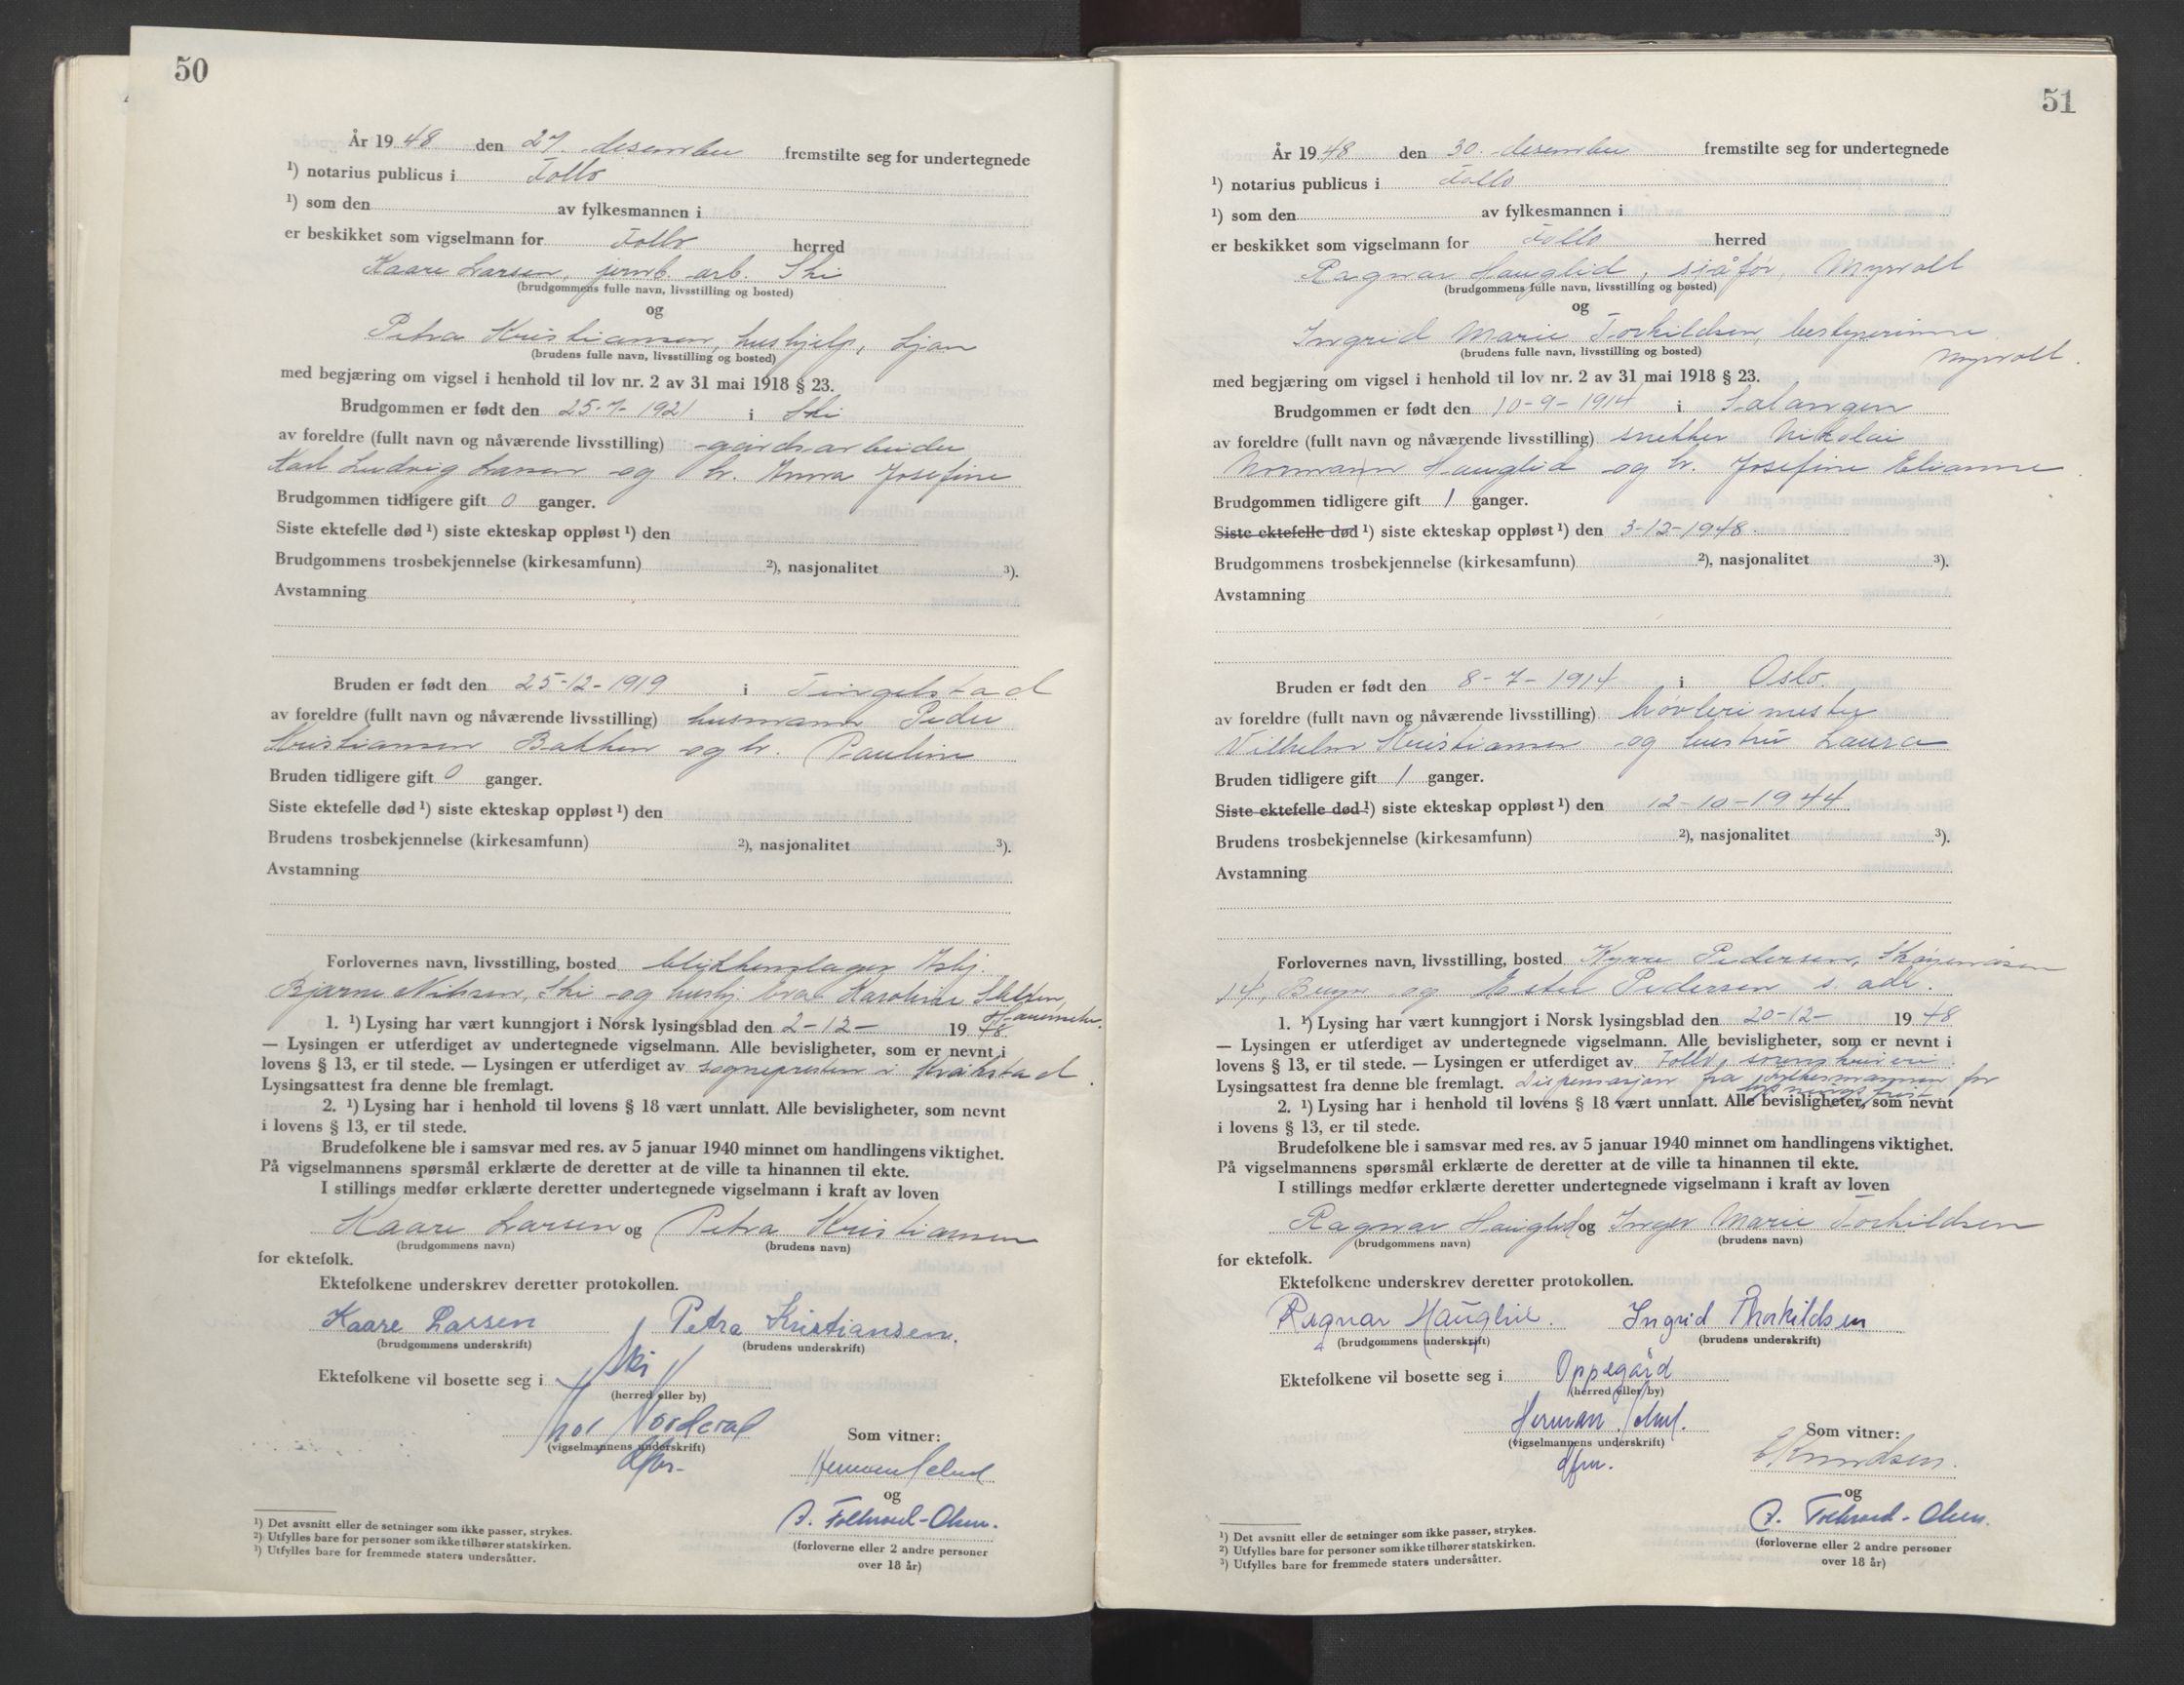 50
År 1948 den 27. desember fremstilte seg for undertegnede
¹) notarius publicus i Follo
¹) som den av fylkesmannen i
er beskikket som vigselmann for Follo herred
Kaare Larsen, jernb. arb. Ski
(brudgommens fulle navn, livsstilling og bosted)
og
Petra Kristiansen, hushjelp, Ljan
(brudens fulle navn, livsstilling og bosted)
med begjæring om vigsel i henhold til lov nr. 2 av 31 mai 1918 § 23.
Brudgommen er født den 25-7-1921 i Ski
av foreldre (fullt navn og nåværende livsstilling) gårdsarbeider
Karl Ludvig Larsen og h. Anna Josefine
Brudgommen tidligere gift 0 ganger.
Siste ektefelle død ¹) siste ekteskap oppløst ¹) den
Brudgommens trosbekjennelse (kirkesamfunn) ²), nasjonalitet ³).
Avstamning
Bruden er født den 25-12-1919 i Tingelstad
av foreldre (fullt navn og nåværende livsstilling) husmann Peder
Kristiansen Bakken og h. Pauline
Bruden tidligere gift 0 ganger.
Siste ektefelle død ¹) siste ekteskap oppløst ¹) den
Brudens trosbekjennelse (kirkesamfunn) ²), nasjonalitet ³).
Avstamning
Forlovernes navn, livsstilling, bosted blikkenslager Asbj.
Bjarne Nilsen, Ski og hushj. Eva Karoline
1. ¹) Lysing har vært kunngjort i Norsk lysingsblad den 2-12- 1948.
— Lysingen er utferdiget av undertegnede vigselmann. Alle bevisligheter, som er nevnt i
lovens § 13, er til stede. — Lysingen er utferdiget av sognepresten i Kråkstad.
Lysingsattest fra denne ble fremlagt.
2. ¹) Lysing har i henhold til lovens § 18 vært unnlatt. Alle bevisligheter, som nevnt
i lovens § 13, er til stede.
Brudefolkene ble i samsvar med res. av 5 januar 1940 minnet om handlingens viktighet.
På vigselmannens spørsmål erklærte de deretter at de ville ta hinannen til ekte.
I stillings medfør erklærte deretter undertegnede vigselmann i kraft av loven
Kaare Larsen og Petra Kristiansen
(brudgommens navn) (brudens navn)
for ektefolk.
Ektefolkene underskrev deretter protokollen.
Kaare Larsen Petra Kristiansen.
(brudgommens underskrift) (brudens underskrift)
Ektefolkene vil bosette seg i Ski
(herred eller by)
Thor
(vigselmannens underskrift)
Som vitner:
Herman
og
(forloverne eller 2 andre personer
over 18 år)
¹) Det avsnitt eller de setninger som ikke passer, strykes.
²) Utfylles bare for personer som ikke tilhører statskirken.
³) Utfylles bare for fremmede staters undersåtter.
51
År 1948 den 30. desember fremstilte seg for undertegnede
¹) notarius publicus i Follo
¹) som den av fylkesmannen i
er beskikket som vigselmann for Follo herred
Ragnar Hauglid, sjåfør, Myrvoll
(brudgommens fulle navn, livsstilling og bosted)
og
Ingrid Marie Torkildsen, bestyrerinne
Myrvoll.
(brudens fulle navn, livsstilling og bosted)
med begjæring om vigsel i henhold til lov nr. 2 av 31 mai 1918 § 23.
Brudgommen er født den 10-9-1914 i Salangen
av foreldre (fullt navn og nåværende livsstilling) snekker Nikolai
Normann Hauglid og h. Josefine Elianne
Brudgommen tidligere gift 1 ganger.
Siste ektefelle død ¹) siste ekteskap oppløst ¹) den 3-12-1948.
Brudgommens trosbekjennelse (kirkesamfunn) ²), nasjonalitet ³).
Avstamning
Bruden er født den 8-7-1914 i Oslo.
av foreldre (fullt navn og nåværende livsstilling) høvlerimester
Vilhelm Kristiansen og hustru Laura
Bruden tidligere gift 1 ganger.
Siste ektefelle død ¹) siste ekteskap oppløst ¹) den 12-10-1944
Brudens trosbekjennelse (kirkesamfunn) ²), nasjonalitet ³).
Avstamning
Forlovernes navn, livsstilling, bosted Kyrre Pedersen,
14, Bryn og Ester Pedersen s. adr.
1. ¹) Lysing har vært kunngjort i Norsk lysingsblad den 20-12- 1948
— Lysingen er utferdiget av undertegnede vigselmann. Alle bevisligheter, som er nevnt i
lovens § 13, er til stede. — Lysingen er utferdiget av Follo sorenskriveri.
Lysingsattest fra denne ble fremlagt. Dispensasjon fra fylkesmannen for
lysningsfrist.
2. ¹) Lysing har i henhold til lovens § 18 vært unnlatt. Alle bevisligheter, som nevnt
i lovens § 13, er til stede.
Brudefolkene ble i samsvar med res. av 5 januar 1940 minnet om handlingens viktighet.
På vigselmannens spørsmål erklærte de deretter at de ville ta hinannen til ekte.
I stillings medfør erklærte deretter undertegnede vigselmann i kraft av loven
Ragnar Hauglid og Inger Marie Torkildsen
(brudgommens navn) (brudens navn)
for ektefolk.
Ektefolkene underskrev deretter protokollen.
Ragnar Hauglid. Ingrid Thorkildsen
(brudgommens underskrift) (brudens underskrift)
Ektefolkene vil bosette seg i Oppegård
(herred eller by)
Herman
(vigselmannens underskrift)
Som vitner:
E Knudsen.
og
(forloverne eller 2 andre personer
over 18 år)
¹) Det avsnitt eller de setninger som ikke passer, strykes.
²) Utfylles bare for personer som ikke tilhører statskirken.
³) Utfylles bare for fremmede staters undersåtter.